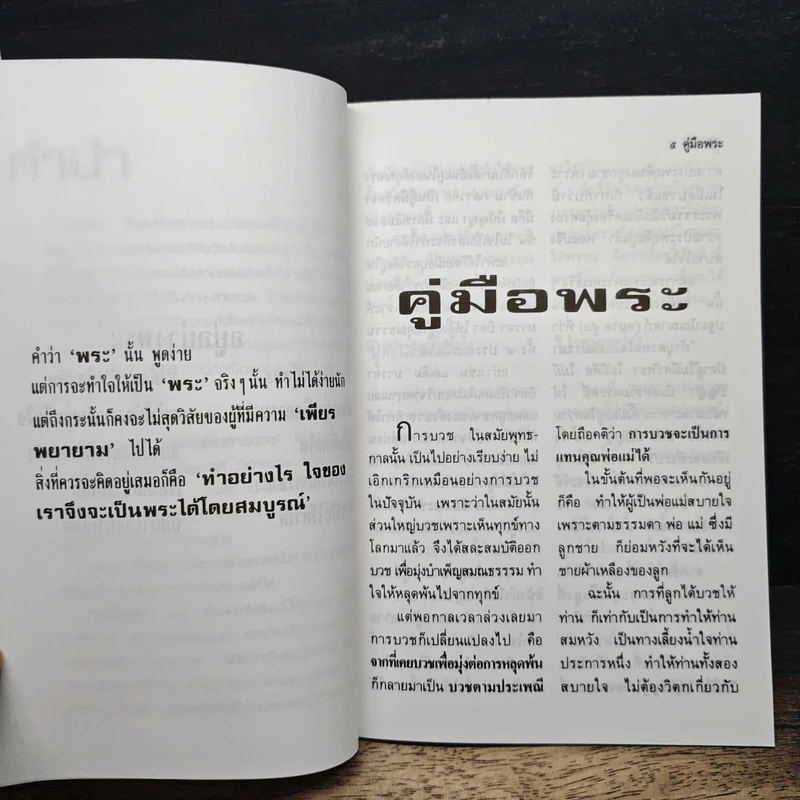 คำว่า 'พระ' นั้น พูดง่าย
แต่การจะทำใจให้เป็น 'พระ' จริงๆ นั้น ทำไม่ได้ง่ายนัก
แต่ถึงกระนั้นก็คงจะไม่สุดวิสัยของผู้ที่มีความ 'เพียร
พยายาม' ไปได้
สิ่งที่ควรจะคิดอยู่เสมอก็คือ 'ทำอย่างไร ใจของ
เราจึงจะเป็นพระได้โดยสมบูรณ์'
๕ คู่มือพระ
คู่มือพระ
การบวช ในสมัยพุทธ-
กาลนั้น เป็นไปอย่างเรียบง่าย ไม่
เอิกเกริกเหมือนอย่างการบวช
ในปัจจุบัน เพราะว่าในสมัยนั้น
ส่วนใหญ่บวชเพราะเห็นทุกข์ทาง
โลกมาแล้ว จึงได้สละสมบัติออก
บวช เพื่อมุ่งบำเพ็ญสมณธรรรม ทำ
ใจให้หลุดพ้นไปจากทุกข์
แต่พอกาลเวลาล่วงเลยมา
การบวชก็เปลี่ยนแปลงไป คือ
จากที่เคยบวชเพื่อมุ่งต่อการหลุดพ้น
ก็กลายมาเป็น บวชตามประเพณี
โดยถือคติว่า การบวชจะเป็นการ
แทนคุณพ่อแม่ได้
ในขั้นต้นที่พอจะเห็นกันอยู่
ก็คือ ทำให้ผู้เป็นพ่อแม่สบายใจ
เพราะตามธรรมดา พ่อ แม่ ซึ่งมี
ลูกชาย ก็ย่อมหวังที่จะได้เห็น
ชายผ้าเหลืองของลูก
ฉะนั้น การที่ลูกได้บวชให้
ท่าน ก็เท่ากับเป็นการทำให้ท่าน
สมหวัง เป็นทางเลี้ยงน้ำใจท่าน
ประการหนึ่ง ทำให้ท่านทั้งสอง
สบายใจ ไม่ต้องวิตกเกี่ยวกับ